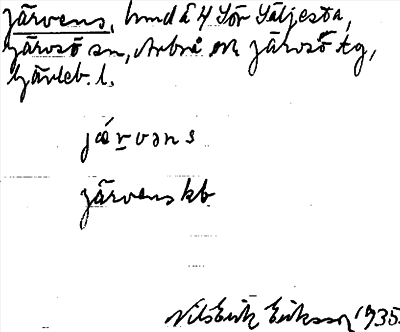 Järvens, hmd å 4 Sör Säljesta,
Järvsö sn, Arbrå o Järvsö tg,
Gävleb. l.
jæ´rvəns
Järvens kb
Nils Erik Eriksson 1935.